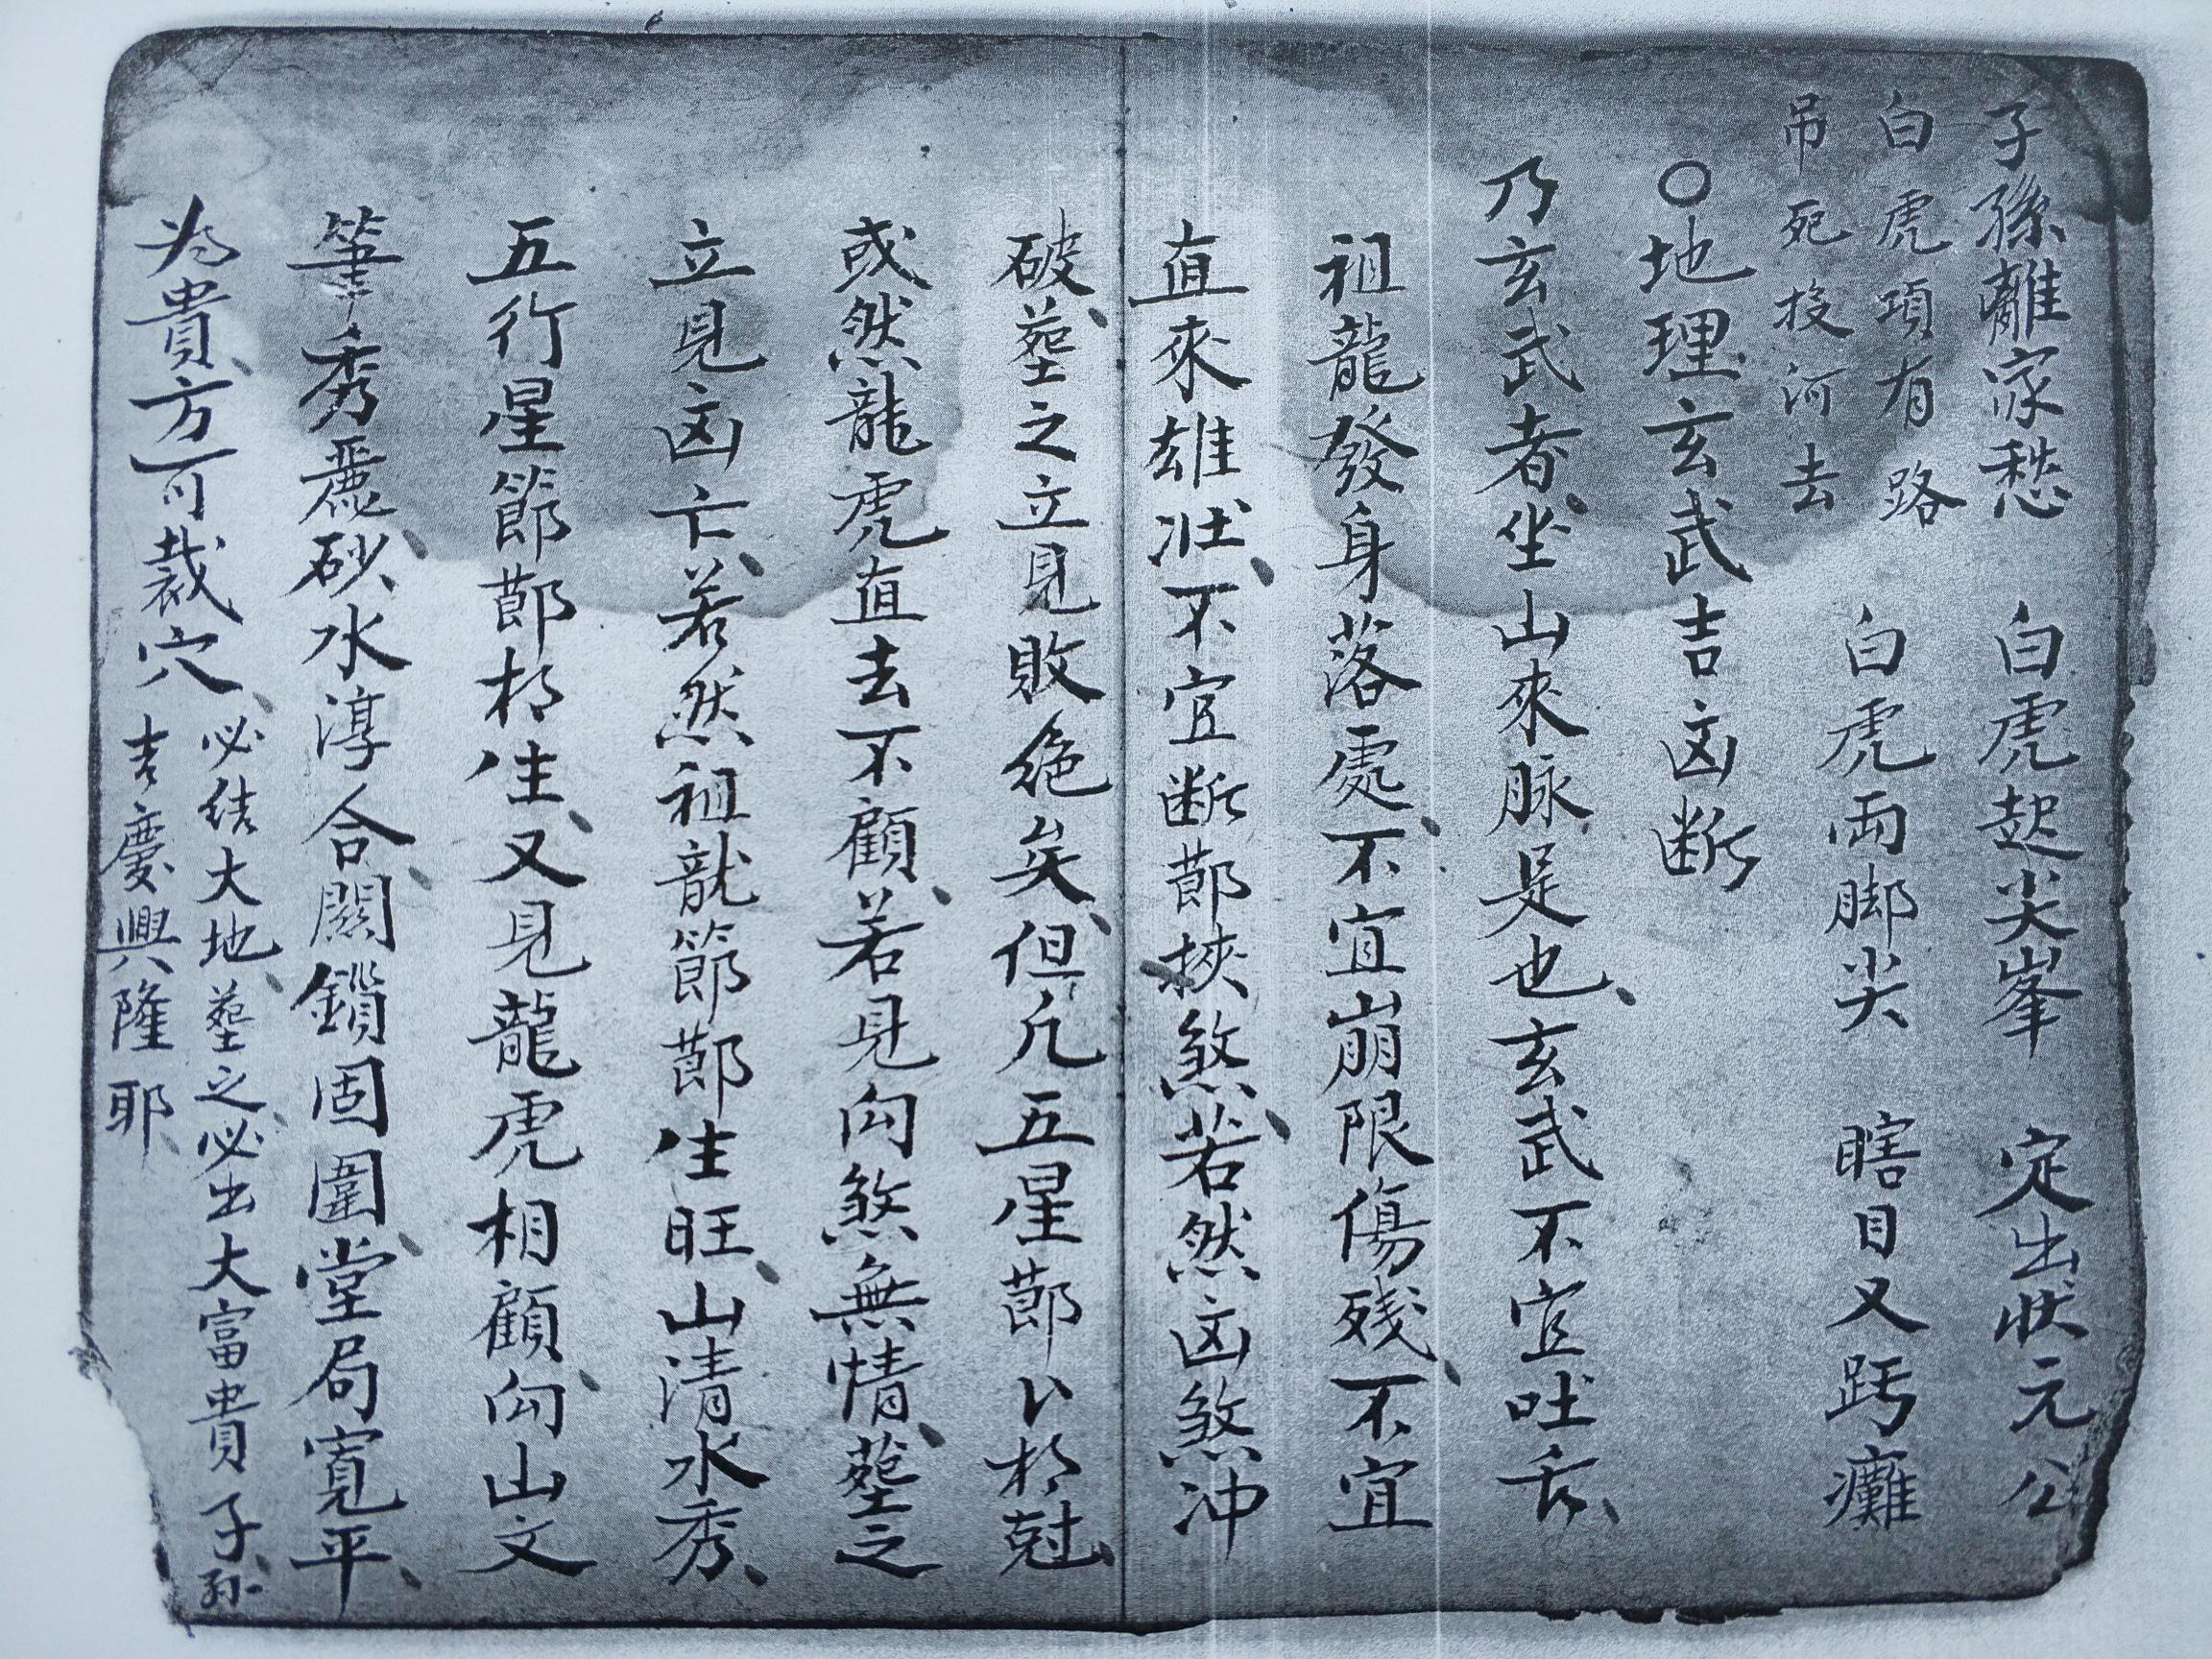 子孫離家愁　白虎起尖峯　定出状元公
白虎項有路　白虎两脚尖　瞎目又跨癱
吊死投河去
○地理玄武吉凶断
乃玄武者坐山來脉是也玄武不宜吐舌
祖龍發身落處不宜崩限傷残不宜
直來雄壯不宜断節挾煞若然凶煞冲
破塟之立見敗绝矣但凡五星節〻相尅
或然龍虎直去不顧若見向煞無情塟之
立見凶亡若然祖龍節節生旺山清水秀
五行星節節相生又見龍虎相顧向山文
筆秀麗砂水淳合關鎖固圍堂局寬平
為貴方可裁穴必结大地塟之必出大富貴子孙
吉慶興隆耶